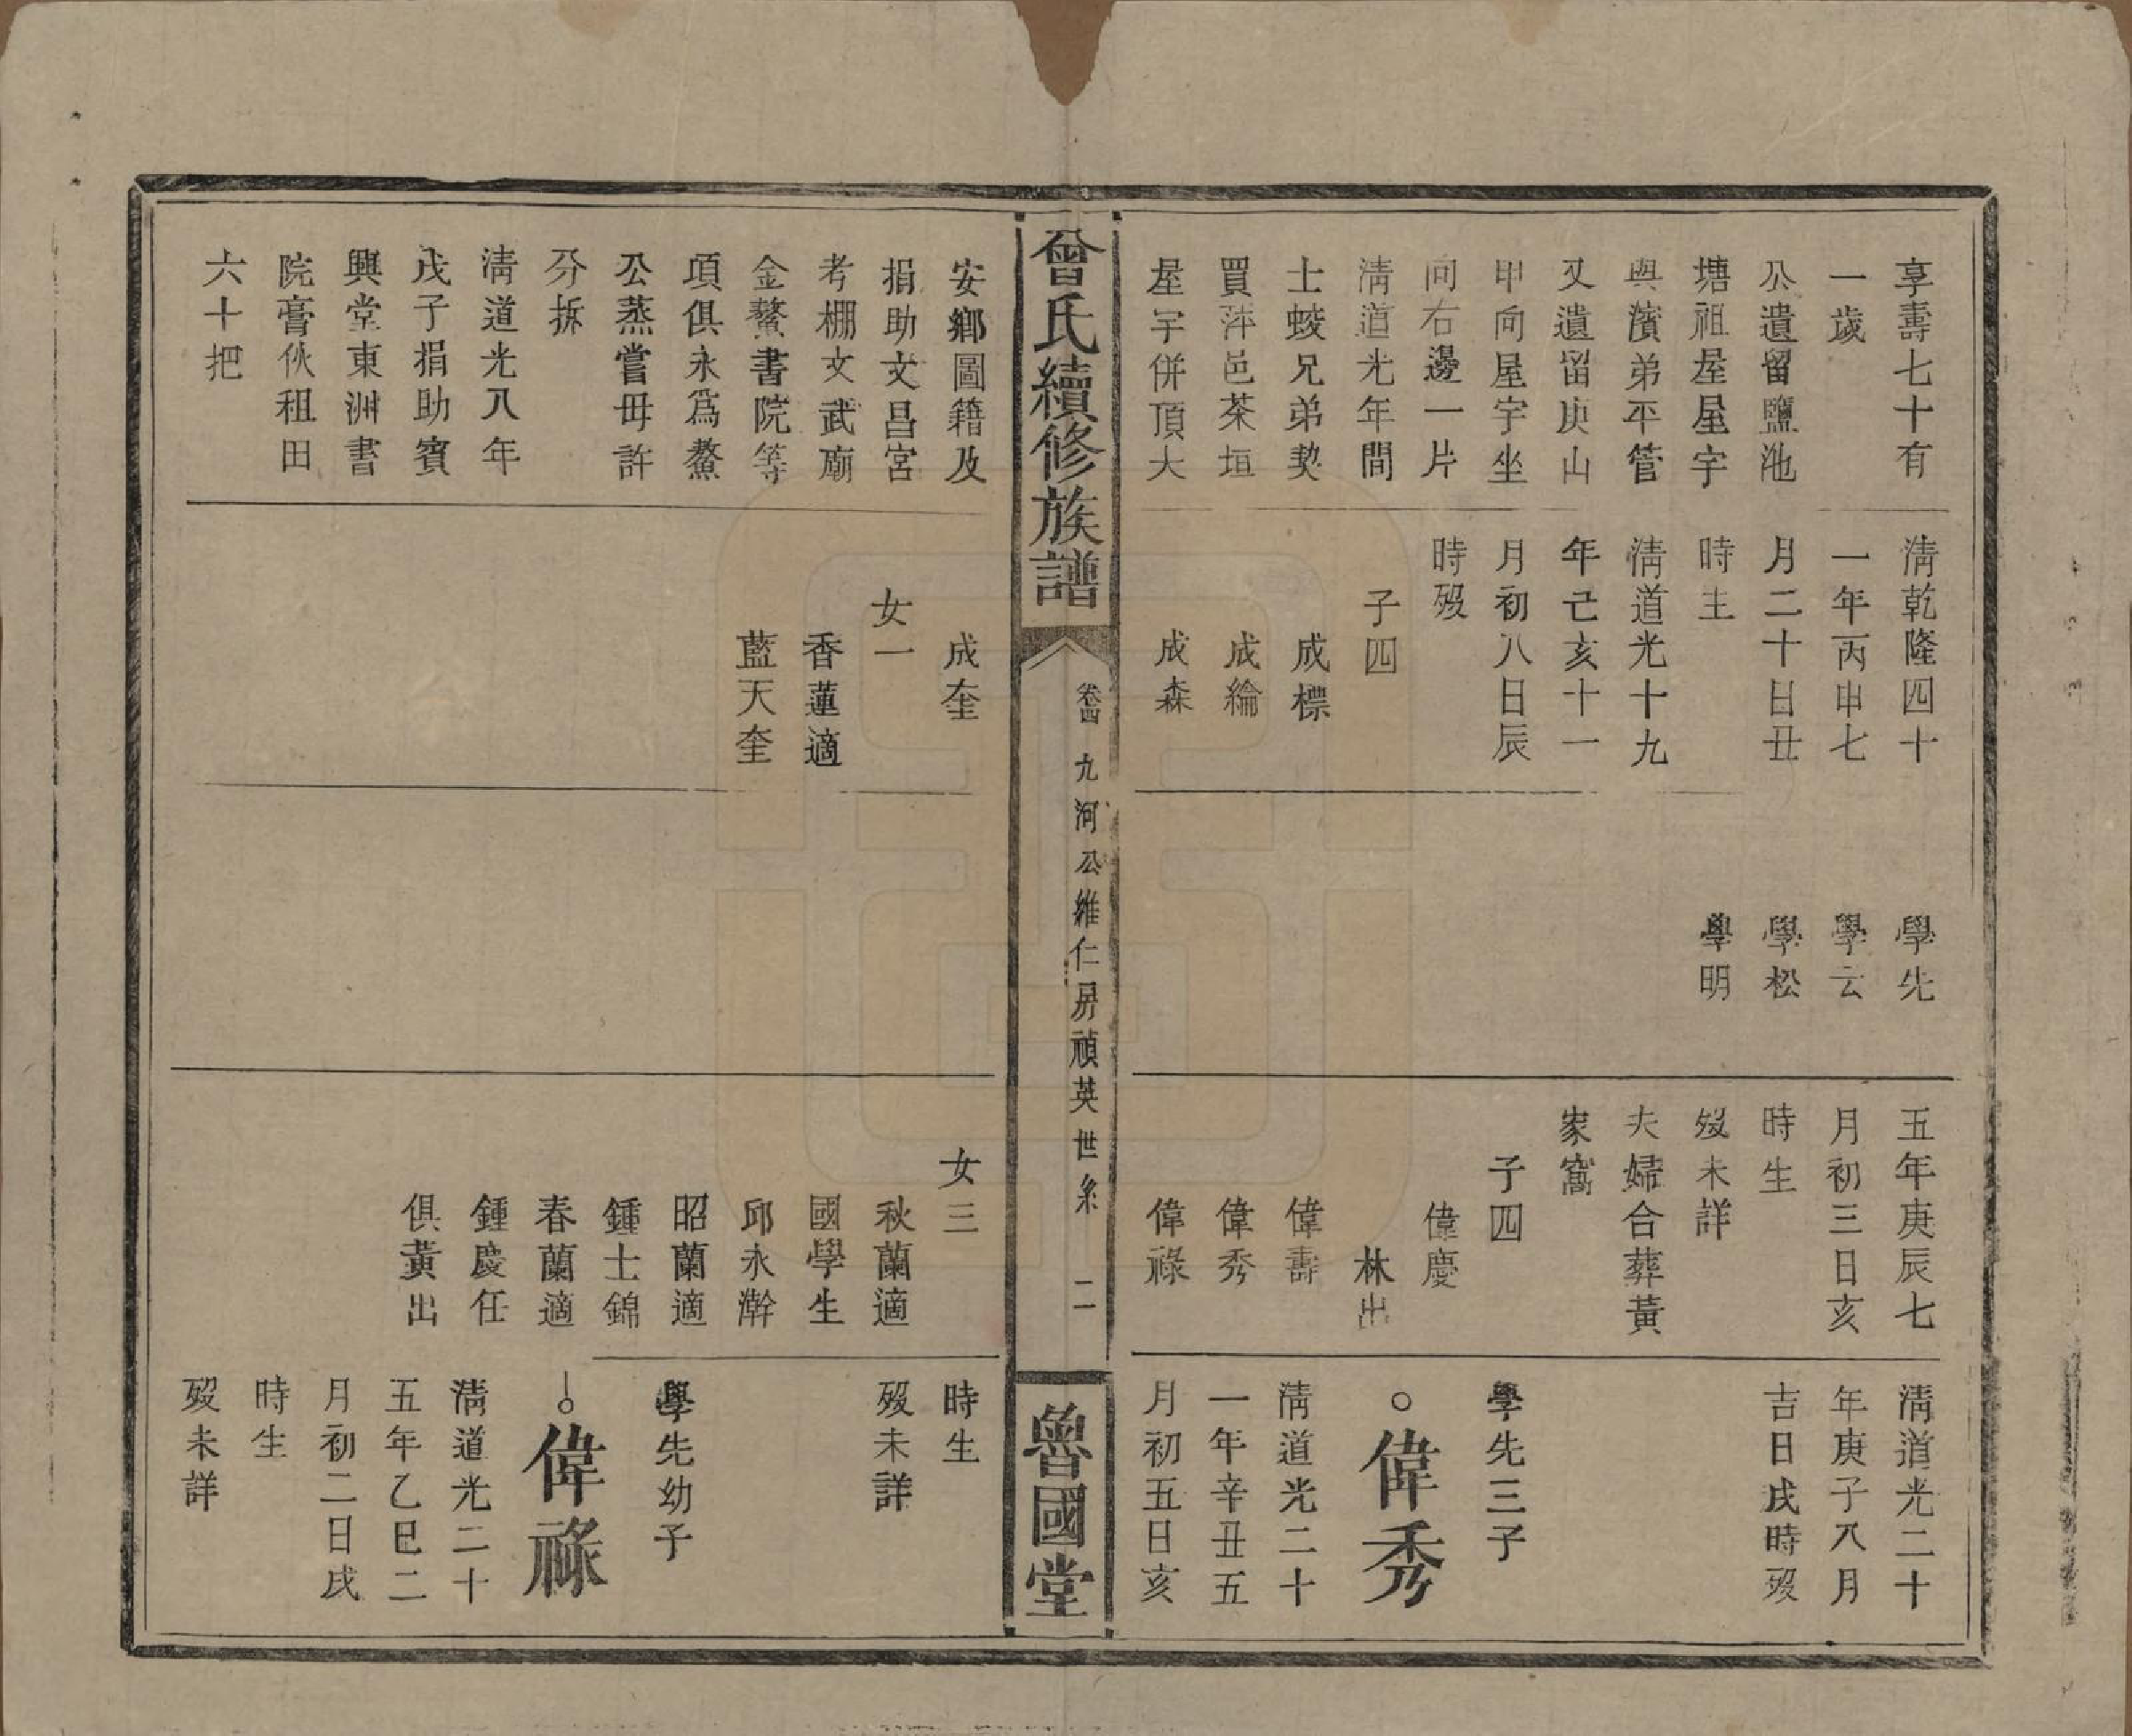 享壽七十有
一歲
公遺留鹽池
塘祖屋屋宇
與濱弟平管
又遺留庚山
甲向屋宇坐
向右邊一片
清道光年間
士蛟兄弟契
買萍邑茶垣
屋宇併頂大
清乾隆四十
一年丙申七
月二十日丑
時生
清道光十九
年己亥十一
月初八日辰
時歿
子四
成標
成綸
成森
學先
學云
學松
學明
五年庚辰七
月初三日亥
時生
歿未詳
夫婦合葬黃
家窩
子四
偉慶
林出
偉壽
偉秀
偉祿
清道光二十
年庚子八月
吉日戌時歿
學先三子
○偉秀
清道光二十
一年辛丑五
月初五日亥
曾氏續修族譜
卷四 九河公維仁昇禎英世系 二
魯國堂
安鄉圖籍及
捐助文昌宮
考棚文武廟
金鰲書院等
項俱永爲鰲
公蒸嘗毋許
分拆
清道光八年
戊子捐助賓
興堂東洲書
院膏伙租田
六十把
成奎
女一
香蓮適
藍天奎
女三
秋蘭適
國學生
邱永澣
昭蘭適
鍾士錦
春蘭適
鍾慶任
俱黃出
時生
歿未詳
學先幼子
○偉祿
清道光二十
五年乙巳二
月初二日戌
時生
歿未詳